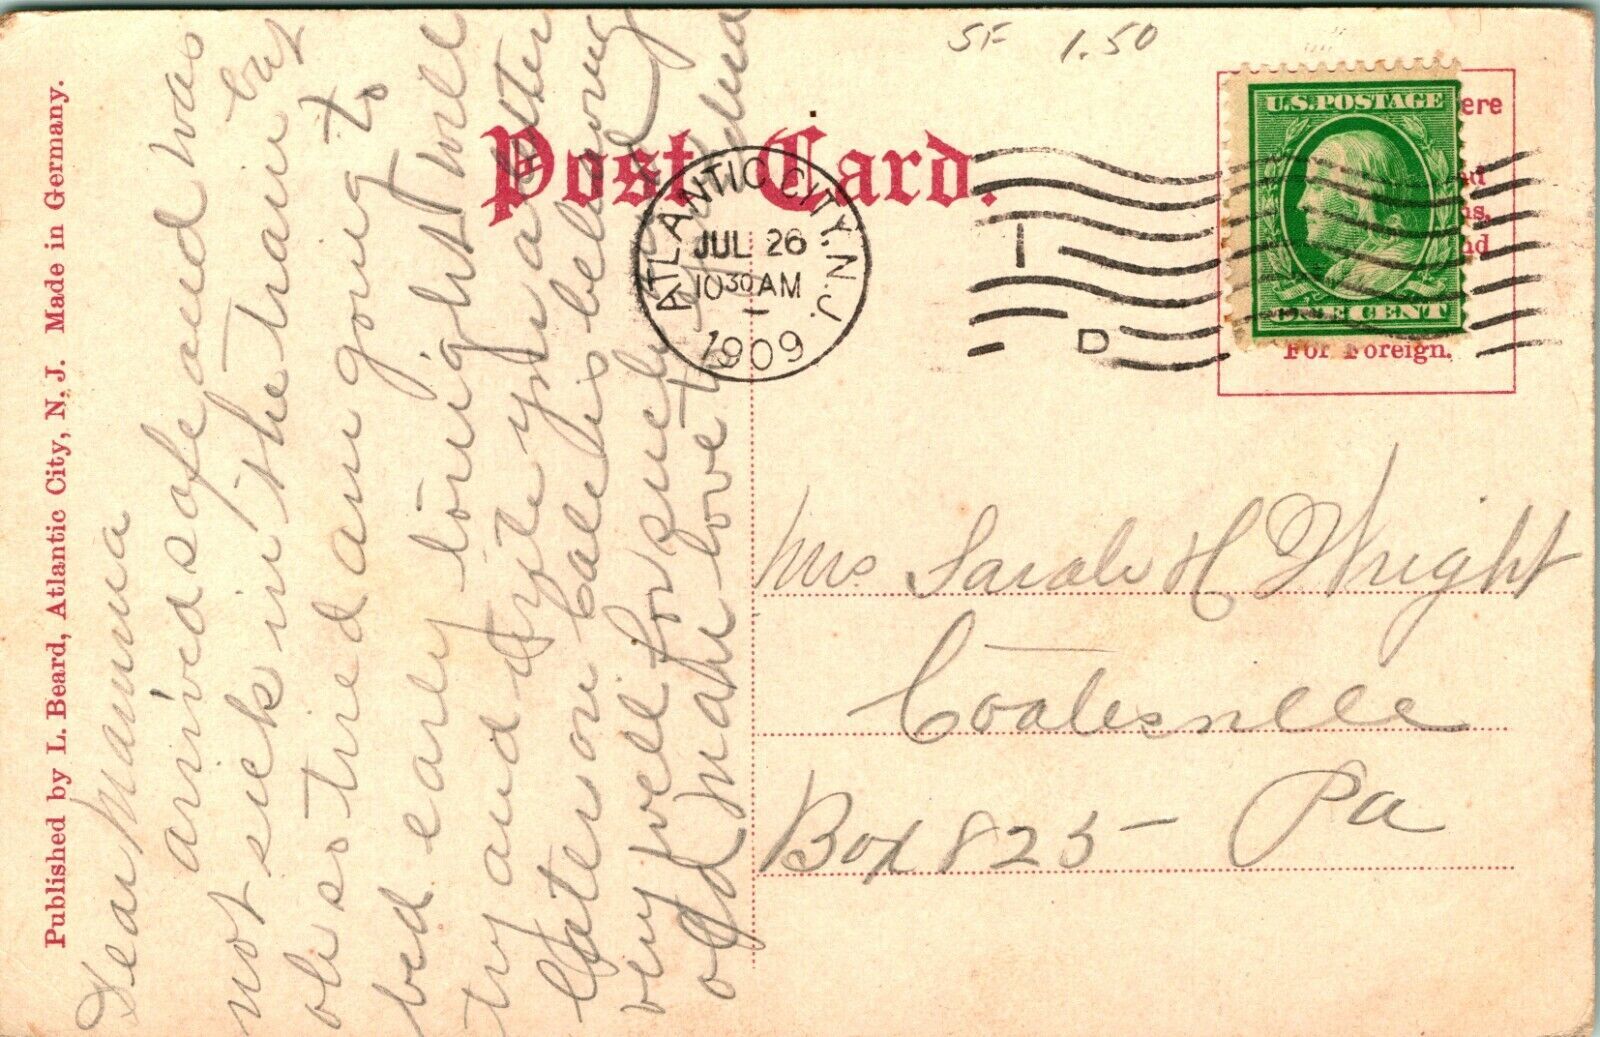 Published by L. Beard, Atlantic City, N. J. Made in Germany.
SF 1.50
Post Card.
ATLANTIC CITY, N.J.
JUL 26
10 30 AM
1909
1
D
U.S. POSTAGE
ONE CENT
ere
nd
For Foreign.
Dear Mamma
arrived safe and was
not sick in the train but
oh so tired am going to
bed early to night will
try and write you a letter
later on
very well for such
old
love to
Mrs Sarah H Wright
Coatesville
Box 825 - Pa